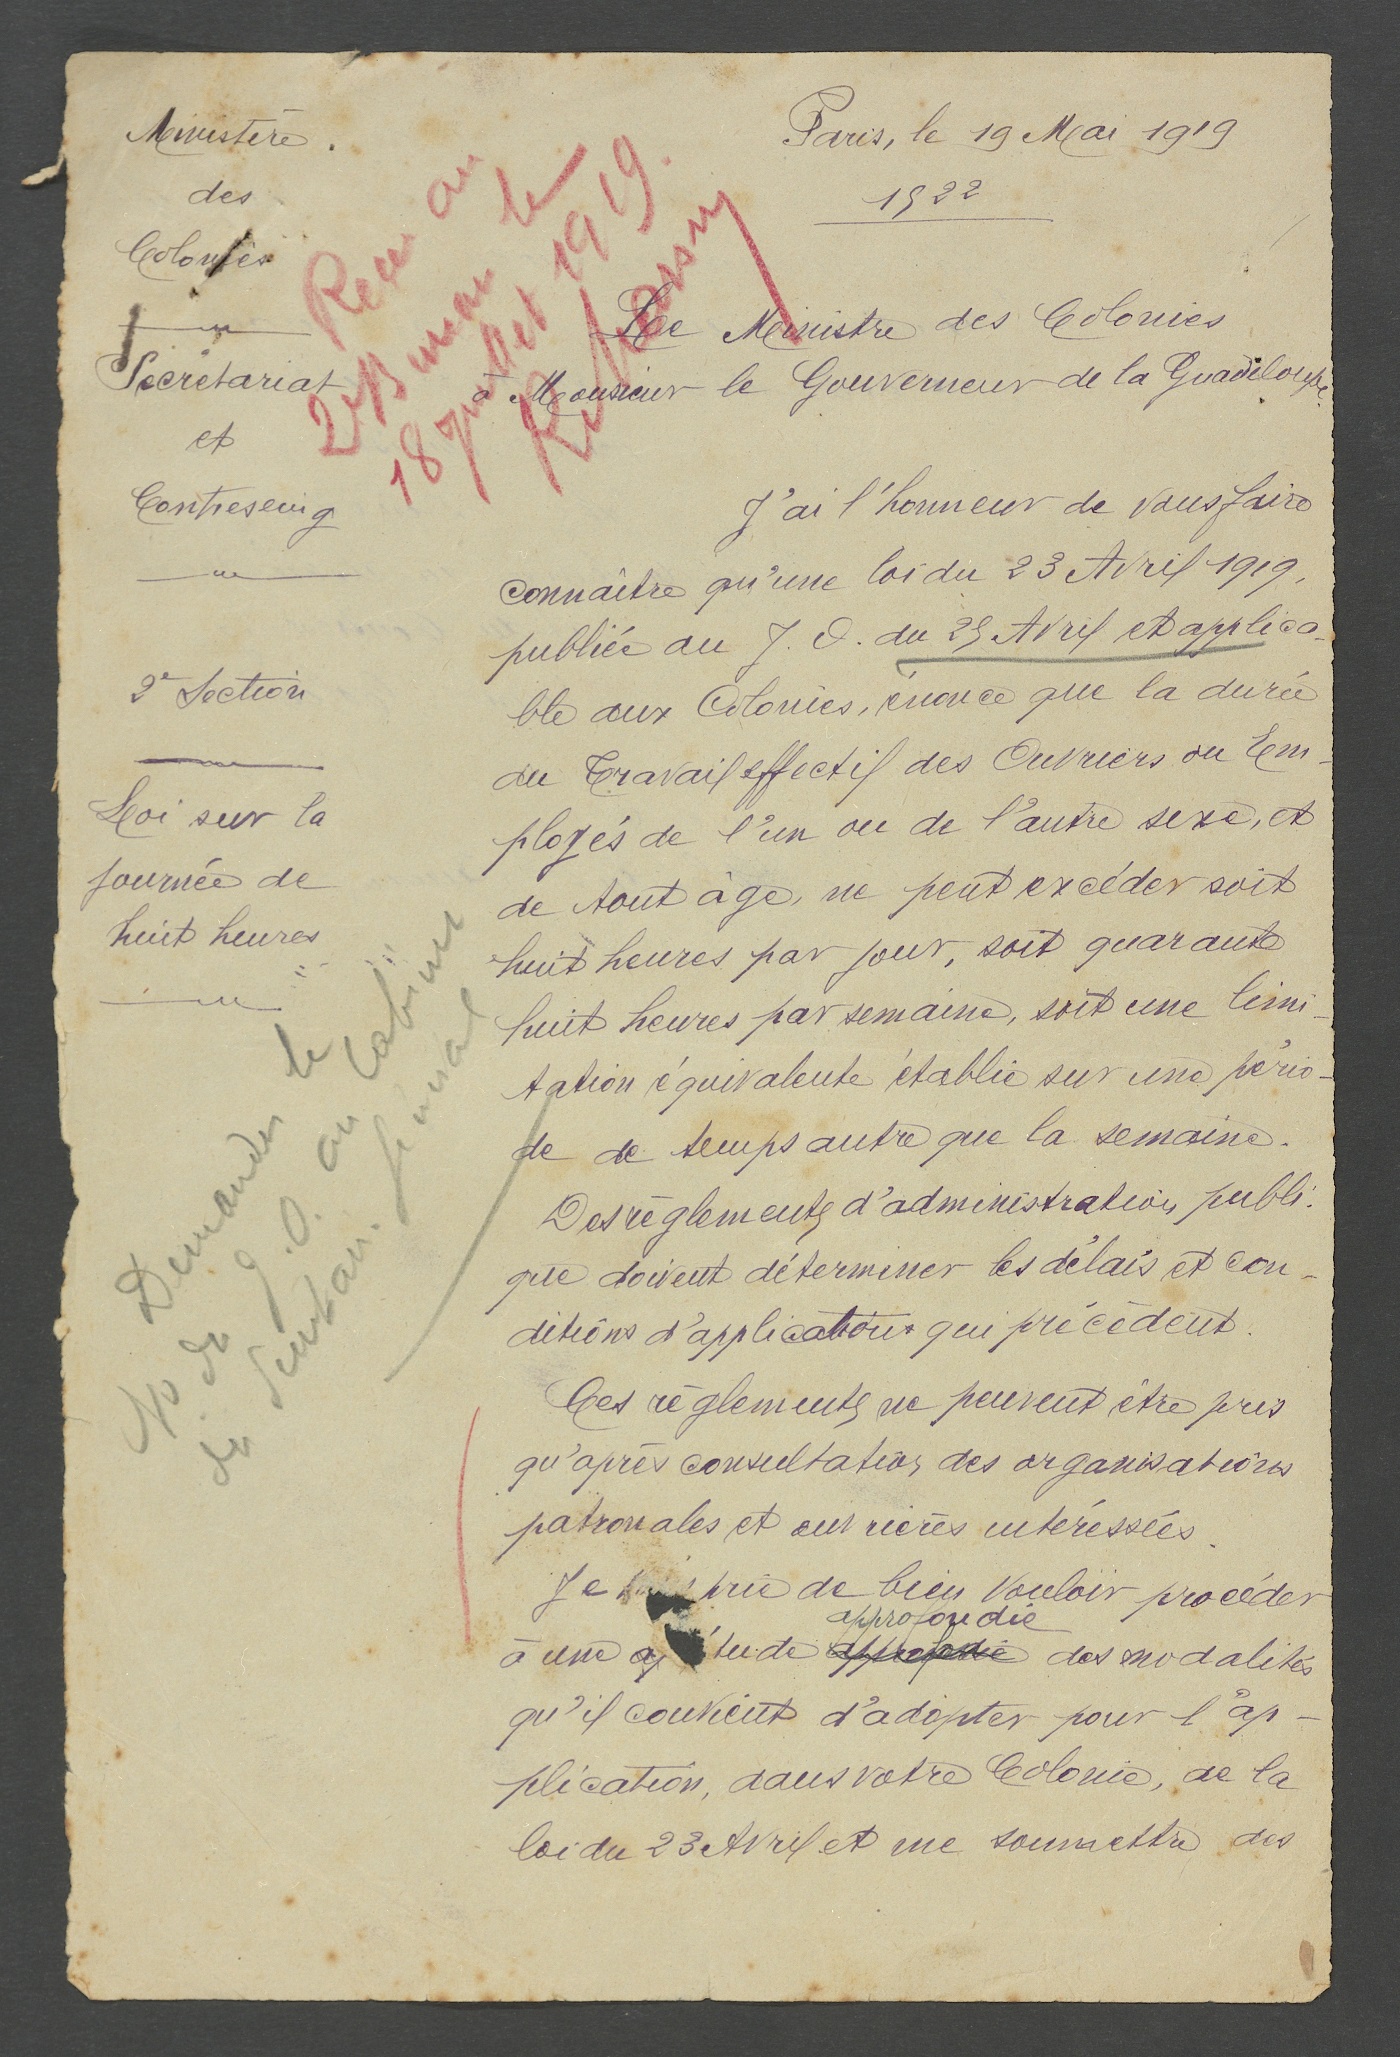 Ministère
des
Colonies
Secrétariat
et
Contreseing
2e Section
Loi sur la
journée de
huit heures
Demander le
No du J.O. au Cabinet
du Secrétariat Général
Reçu au
2e Bureau le
18 juillet 1919.
Paris, le 19 Mai 1919
1922
Le Ministre des Colonies
à Monsieur le Gouverneur de la Guadeloupe.
J'ai l'honneur de vous faire
connaître qu'une loi du 23 Avril 1919,
publiée au J. O. du 25 Avril et applica-
ble aux Colonies, énonce que la durée
du Travail effectif des Ouvriers ou Em-
ployés de l'un ou de l'autre sexe, et
de tout âge, ne peut excéder soit
huit heures par jour, soit quarante
huit heures par semaine, soit une limi-
tation équivalente établie sur une pério-
de de temps autre que la semaine.
Des règlements d'administration publi-
que doivent déterminer les délais et con-
ditions d'application qui précèdent.
Ces règlements ne peuvent être pris
qu'après consultation des organisations
patronales et ouvrières intéressées.
Je prie de bien vouloir procéder
approfondie
à une étude des modalités
qu'il convient d'adopter pour l'ap-
plication, dans votre Colonie, de la
loi du 23 Avril et me soumettre des